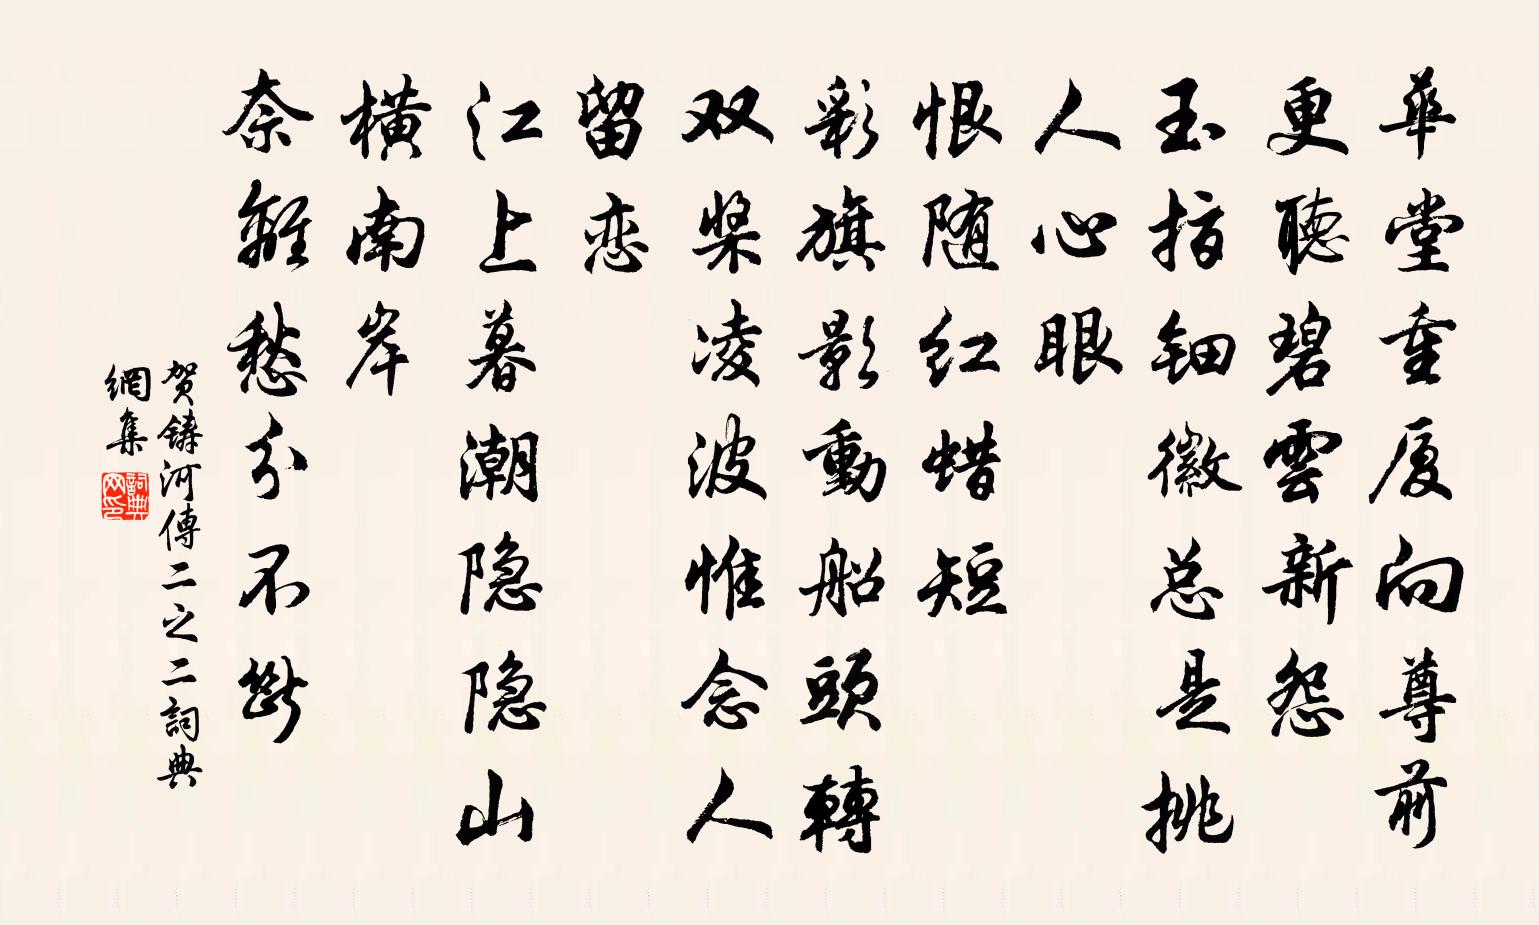 華堂重厦向尊前
更聽碧雲新怨
玉指钿徽总是挑
人心眼
恨随红蜡短
彩旗影動船頭轉
双桨凌波惟念人
留恋
江上暮潮隐隐山
横南岸
奈離愁分不斷
贺鑄河傳二之二詞典
網集
詞典
网印